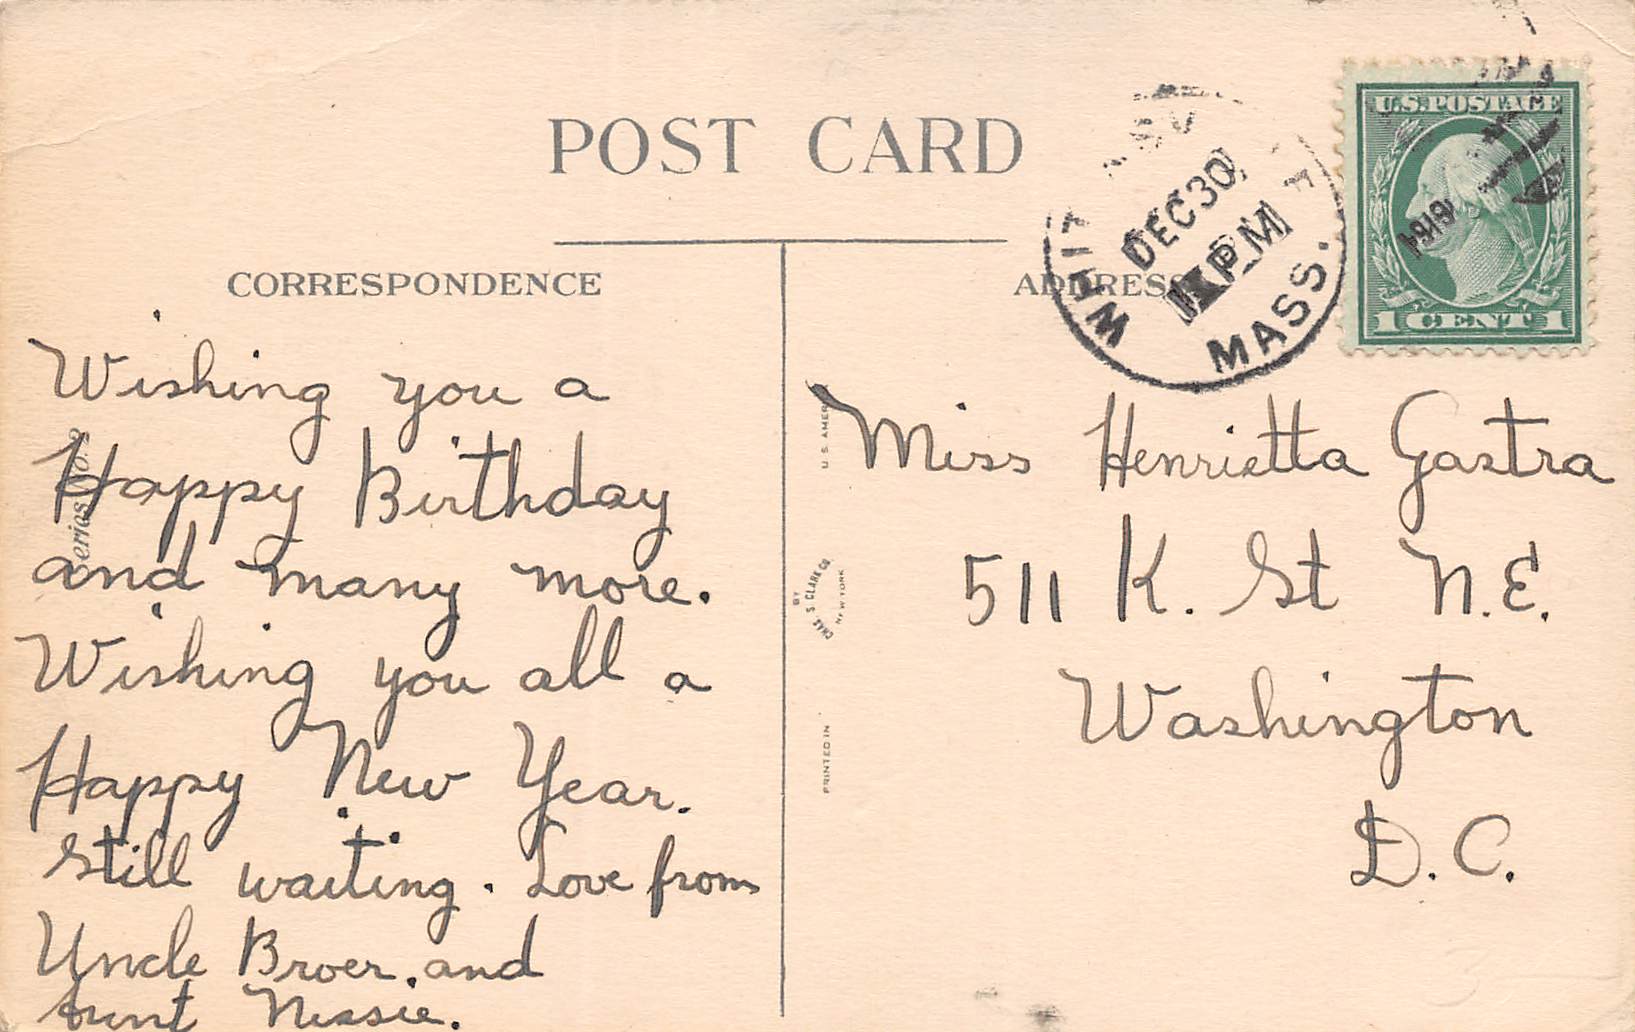 POST CARD
CORRESPONDENCE
ADDRESS
WHIT
DEC 30
PM
MASS.
U.S. POSTAGE
1 CENT 1
Wishing you a
Happy Birthday
and many more.
Wishing you all a
Happy New Year.
Still waiting. Love from
Uncle Broer and
Aunt Nessie.
Series No. 2
U.S. AMER
BY
CHAS S CLARK CO
NEW YORK
PRINTED IN
Miss Henrietta Gastra
511 K. St N.E.
Washington
D.C.